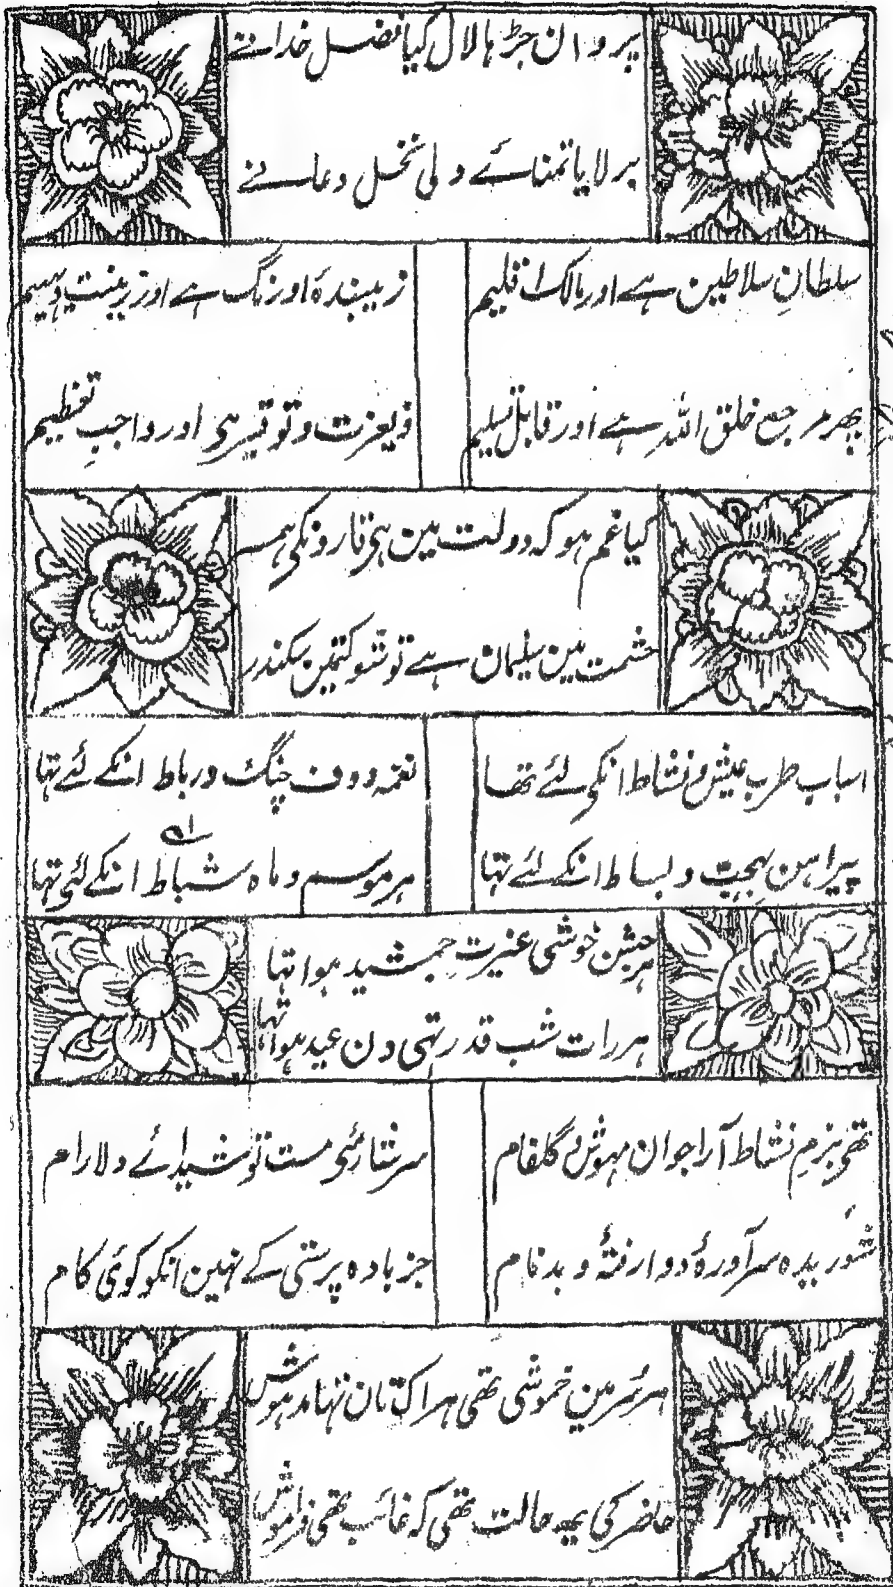 پروان چڑہا لال کیا فضل خدا نے
بر لایا تمنائے دلی نخل دعا نے
سلطانِ سلاطین ہے اور مالک اقلیم زیبندۂ اورنگ ہے اور زینت دیہیم
پھر مرجع خلق اللہ ہے اور قابل تسلیم ذیعزت و توقیر ہی اور واجبِ تعظیم
کیا غم ہو کہ دولت مین ہی قارونکی ہمسر
حشمت مین سلیمان ہے تو شوکتمین سکندر
اسباب طرب عیش و نشاط انکی لئے تھا نغمہ و دف چنگ و رباط انکے لئے تہا
پیراہن بہجت و بساط انکے لئے تہا ہر موسم و ماہ شباط انکے لئی تہا
ہر جشن خوشی غیرتِ جمشید ہوا تہا
ہر رات شب قدر تہی دن عید ہوا تہا
تھی بزمِ نشاط آرا جوان مہوش گلفام سرشار مئی مست تو شیدائے دلارام
شوریدہ سر آورۂ و وارفتۂ و بدنام جز بادہ پرستی کے نہین انکو کوئی کام
ہر سُر مین خموشی تھی ہر اک تان تہا مدہوش
حاضر کی یہہ حالت تھی کہ غائب تھی فراموش